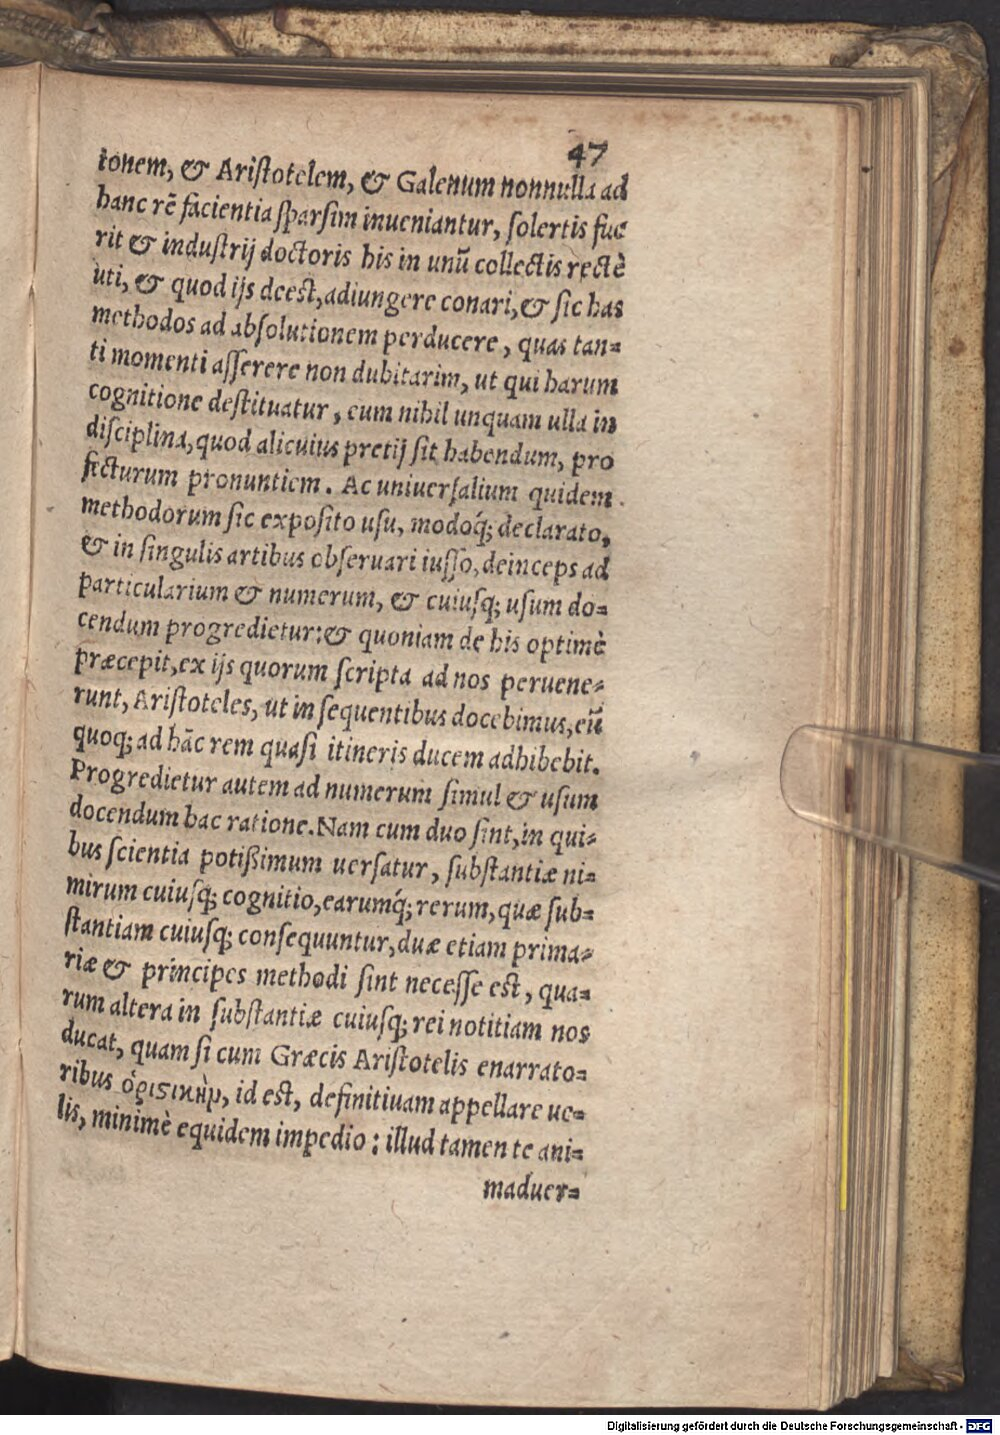 47
tonem, & Aristotelem, & Galenum nonnulla ad
hanc rẽ facientia sparsim inueniantur, solertis fue
rit & industrij doctoris his in unũ collectis rectè
uti, & quod ijs deest, adiungere conari, & sic has
methodos ad absolutionem perducere, quas tan=
ti momenti asserere non dubitarim, ut qui harum
cognitione destituatur, eum nihil unquam ulla in
disciplina, quod alicuius pretij sit habendum, pro
fecturum pronuntiem. Ac uniuersalium quidem
methodorum sic exposito usu, modoq́; declarato,
& in singulis artibus obseruari iusso, deinceps ad
particularium & numerum, & cuiusq; usum do=
cendum progredietur: & quoniam de his optimè
præcepit, ex ijs quorum scripta ad nos peruene=
runt, Aristoteles, ut in sequentibus docebimus, eũ
quoq; ad hãc rem quasi itineris ducem adhibebit.
Progredietur autem ad numerum simul & usum
docendum hac ratione. Nam cum duo sint, in qui=
bus scientia potißimum uersatur, substantiæ ni=
mirum cuiusq; cognitio, earumq́; rerum, quæ sub=
stantiam cuiusq; consequuntur, duæ etiam prima=
riæ & principes methodi sint necesse est, qua=
rum altera in substantiæ cuiusq; rei notitiam nos
ducat, quam si cum Græcis Aristotelis enarrato=
ribus ὁριστικὴν, id est, definitiuam appellare ue=
lis, minimè equidem impedio: illud tamen te ani=
maduer=
Digitalisierung gefördert durch die Deutsche Forschungsgemeinschaft - DFG